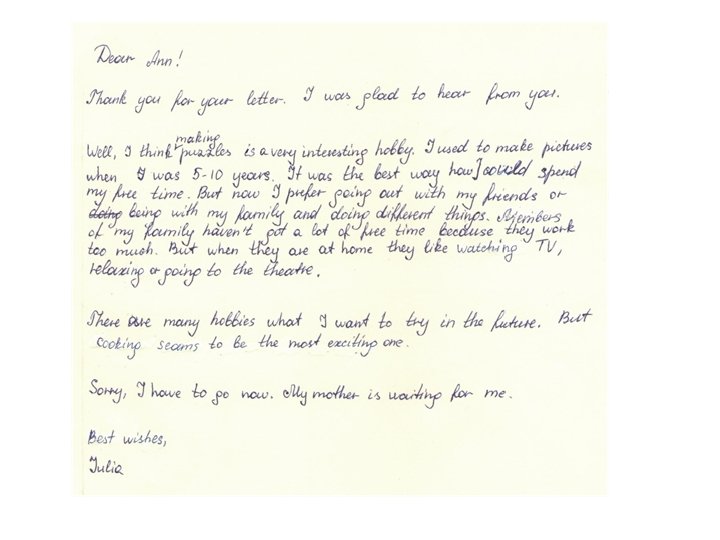 Dear Ann!
Thank you for your letter. I was glad to hear from you.
Well, I think making puzzles is a very interesting hobby. I used to make pictures
when I was 5-10 years. It was the best way how I could spend
my free time. But now I prefer going out with my friends or
doing being with my family and doing different things. Members
of my family haven't got a lot of free time because they work
too much. But when they are at home they like watching TV,
relaxing or going to the theatre.
There are many hobbies what I want to try in the future. But
cooking seams to be the most exciting one.
Sorry, I have to go now. My mother is waiting for me.
Best wishes,
Julia